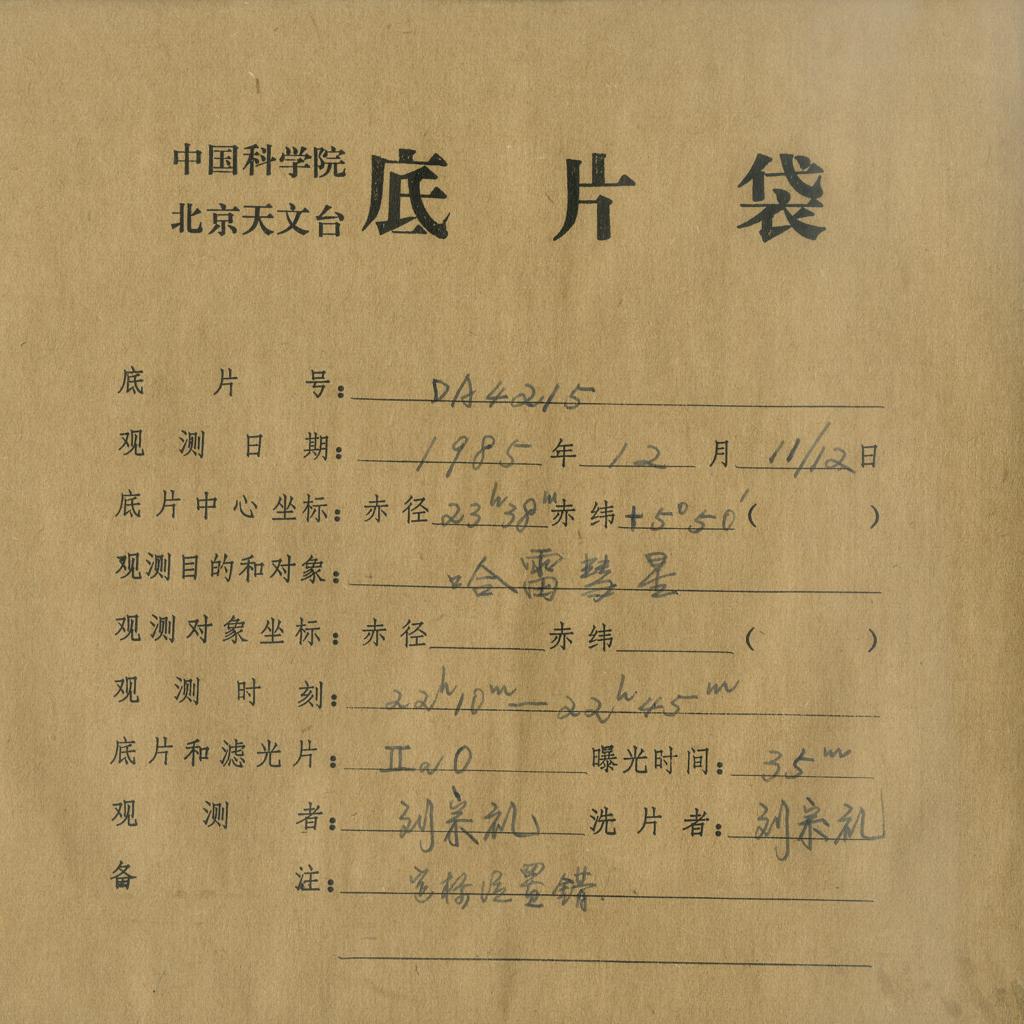 中国科学院
北京天文台 底片袋
底片号：DA4215
观测日期：1985年12月11/12日
底片中心坐标：赤径23ʰ38ᵐ赤纬+5°50′（ ）
观测目的和对象：哈雷彗星
观测对象坐标：赤径 赤纬 （ ）
观测时刻：22ʰ10ᵐ—22ʰ45ᵐ
底片和滤光片：IIaO 曝光时间：35ᵐ
观测者：刘宗礼 洗片者：刘宗礼
备注：定标位置错.